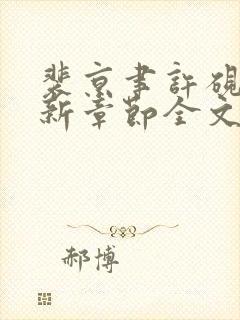 裴京聿許硯
新章節全文
郝博